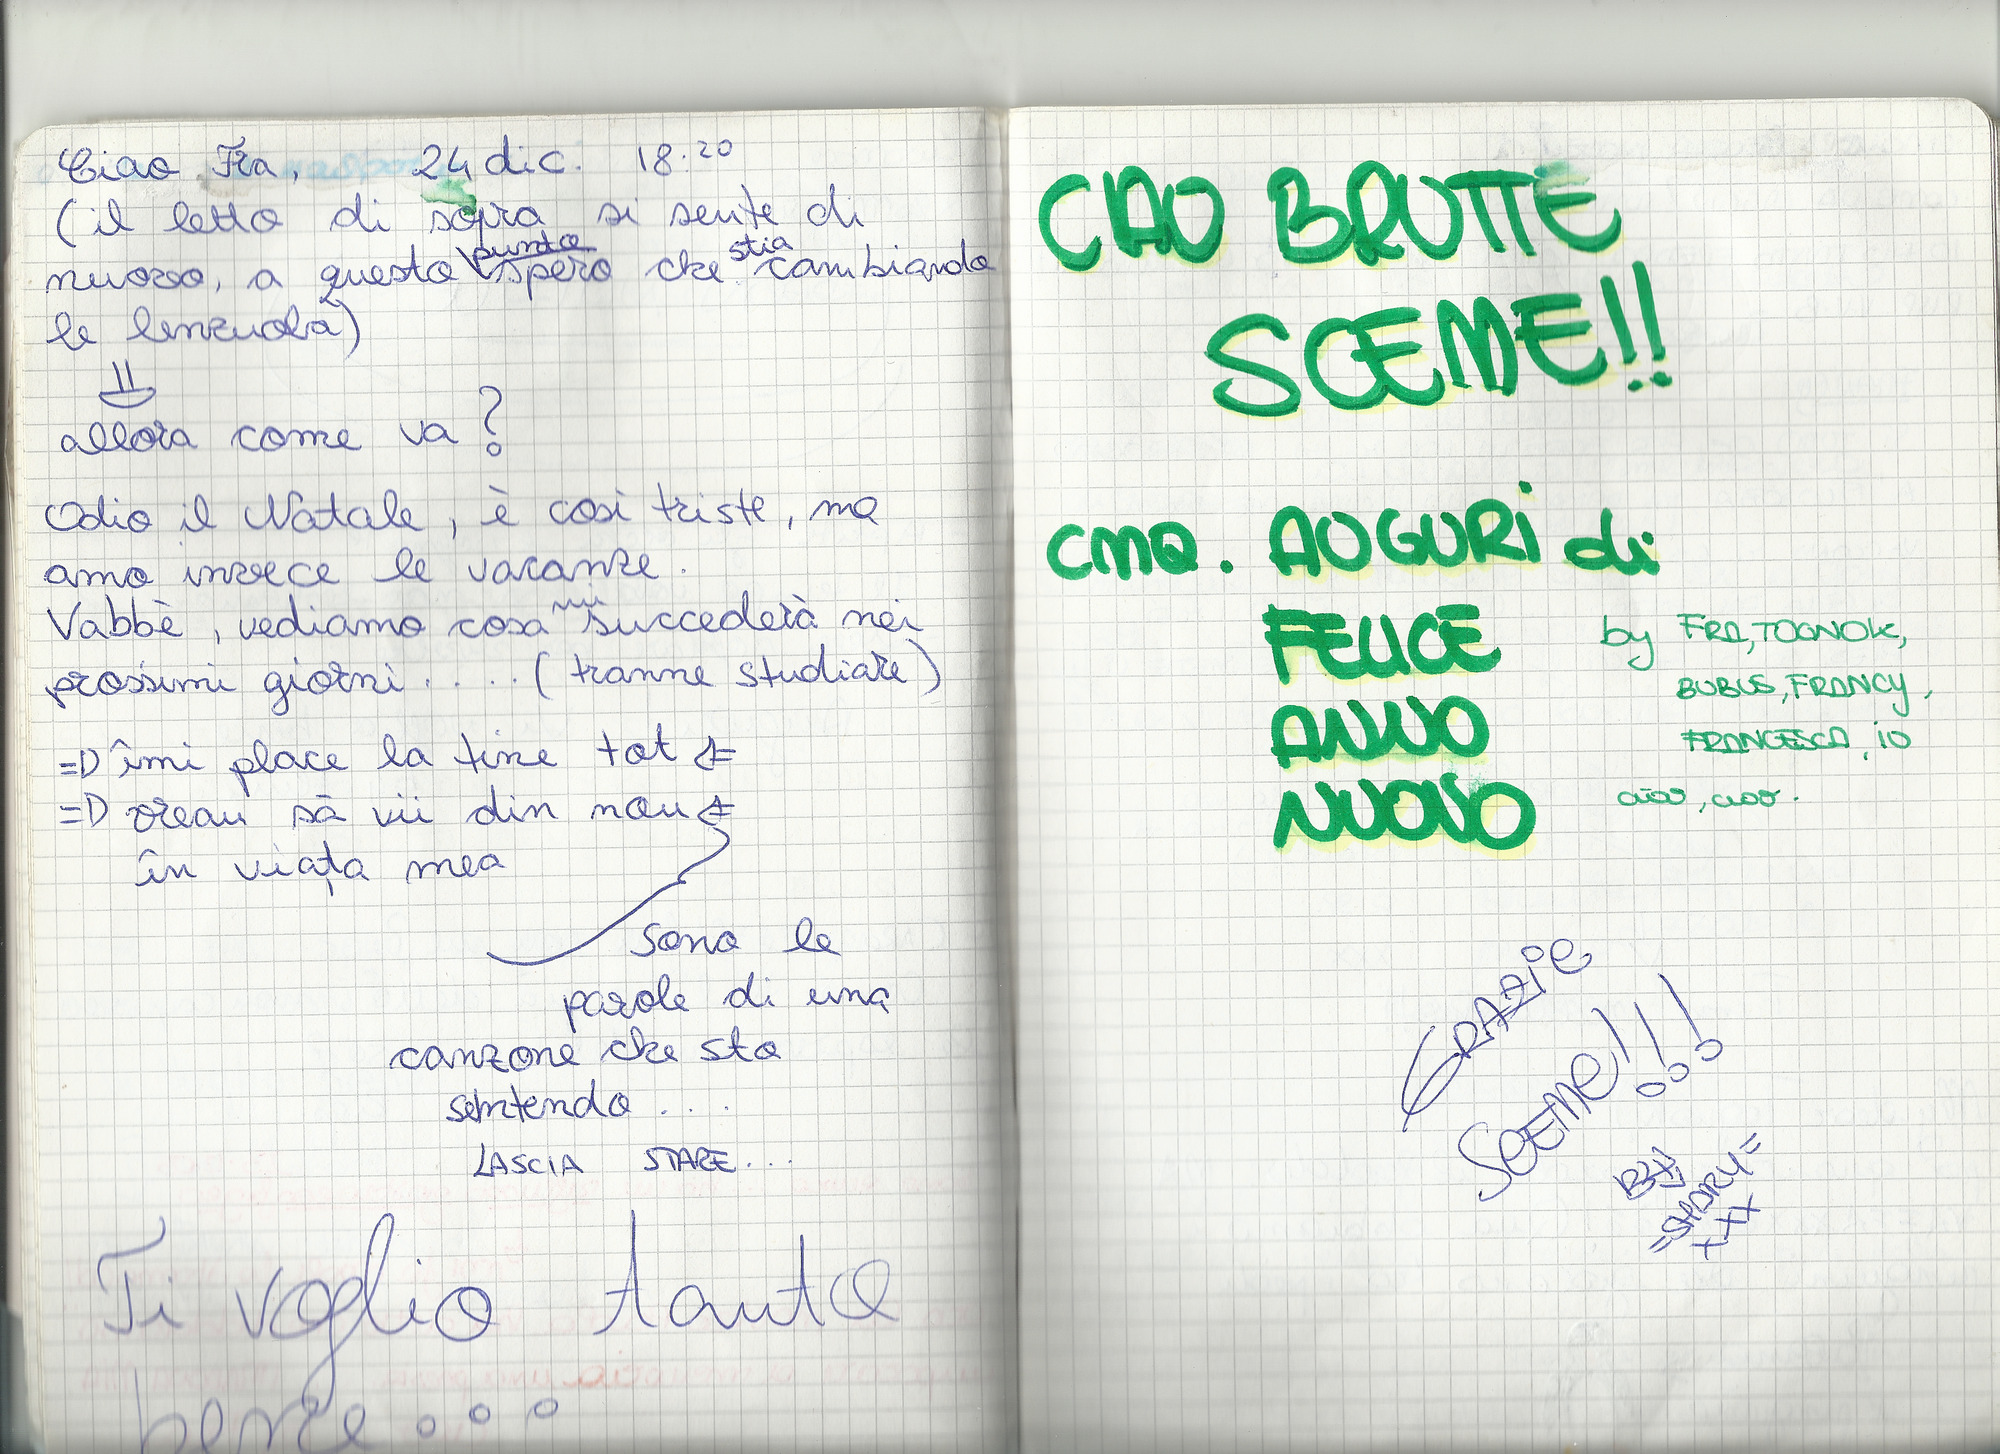 Ciao Fra, 24 dic. 18.20
(il letto di sopra si sente di
nuovo, a questo punto spero che stia cambiando
le lenzuola)
allora come va?
Odio il Natale, è così triste, ma
amo invece le vacanze.
Vabbè, vediamo cosa mi succederà nei
prossimi giorni..... (tranne studiare)
=D îmi place la tine tot
=D vreau să vii din nou
în viața mea
sono le
parole di una
canzone che sto
sentendo....
LASCIA STARE...
Ti voglio tanto
bene...
CIAO BRUTTE
SCEME!!
CMQ. AUGURI di:
FELICE
ANNO
NUOVO
by FRA, TOGNOK,
BUBUS, FRANCY,
FRANCESCA, IO
ciao, ciao.
GRAZIE
SCEME!!!
BY
XXX